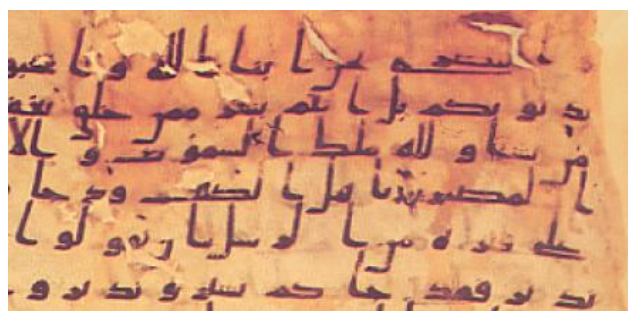 النصرى نحن ابنا الله و احبو
بذنوبكم بل انتم بشر ممن خلق يغفر
من يشا و لله ملك السموت و الا
المصير ياهل الكتب قد جا
على فترة من الرسل ان تقولوا
نذير فقد جاكم بشير و نذير و